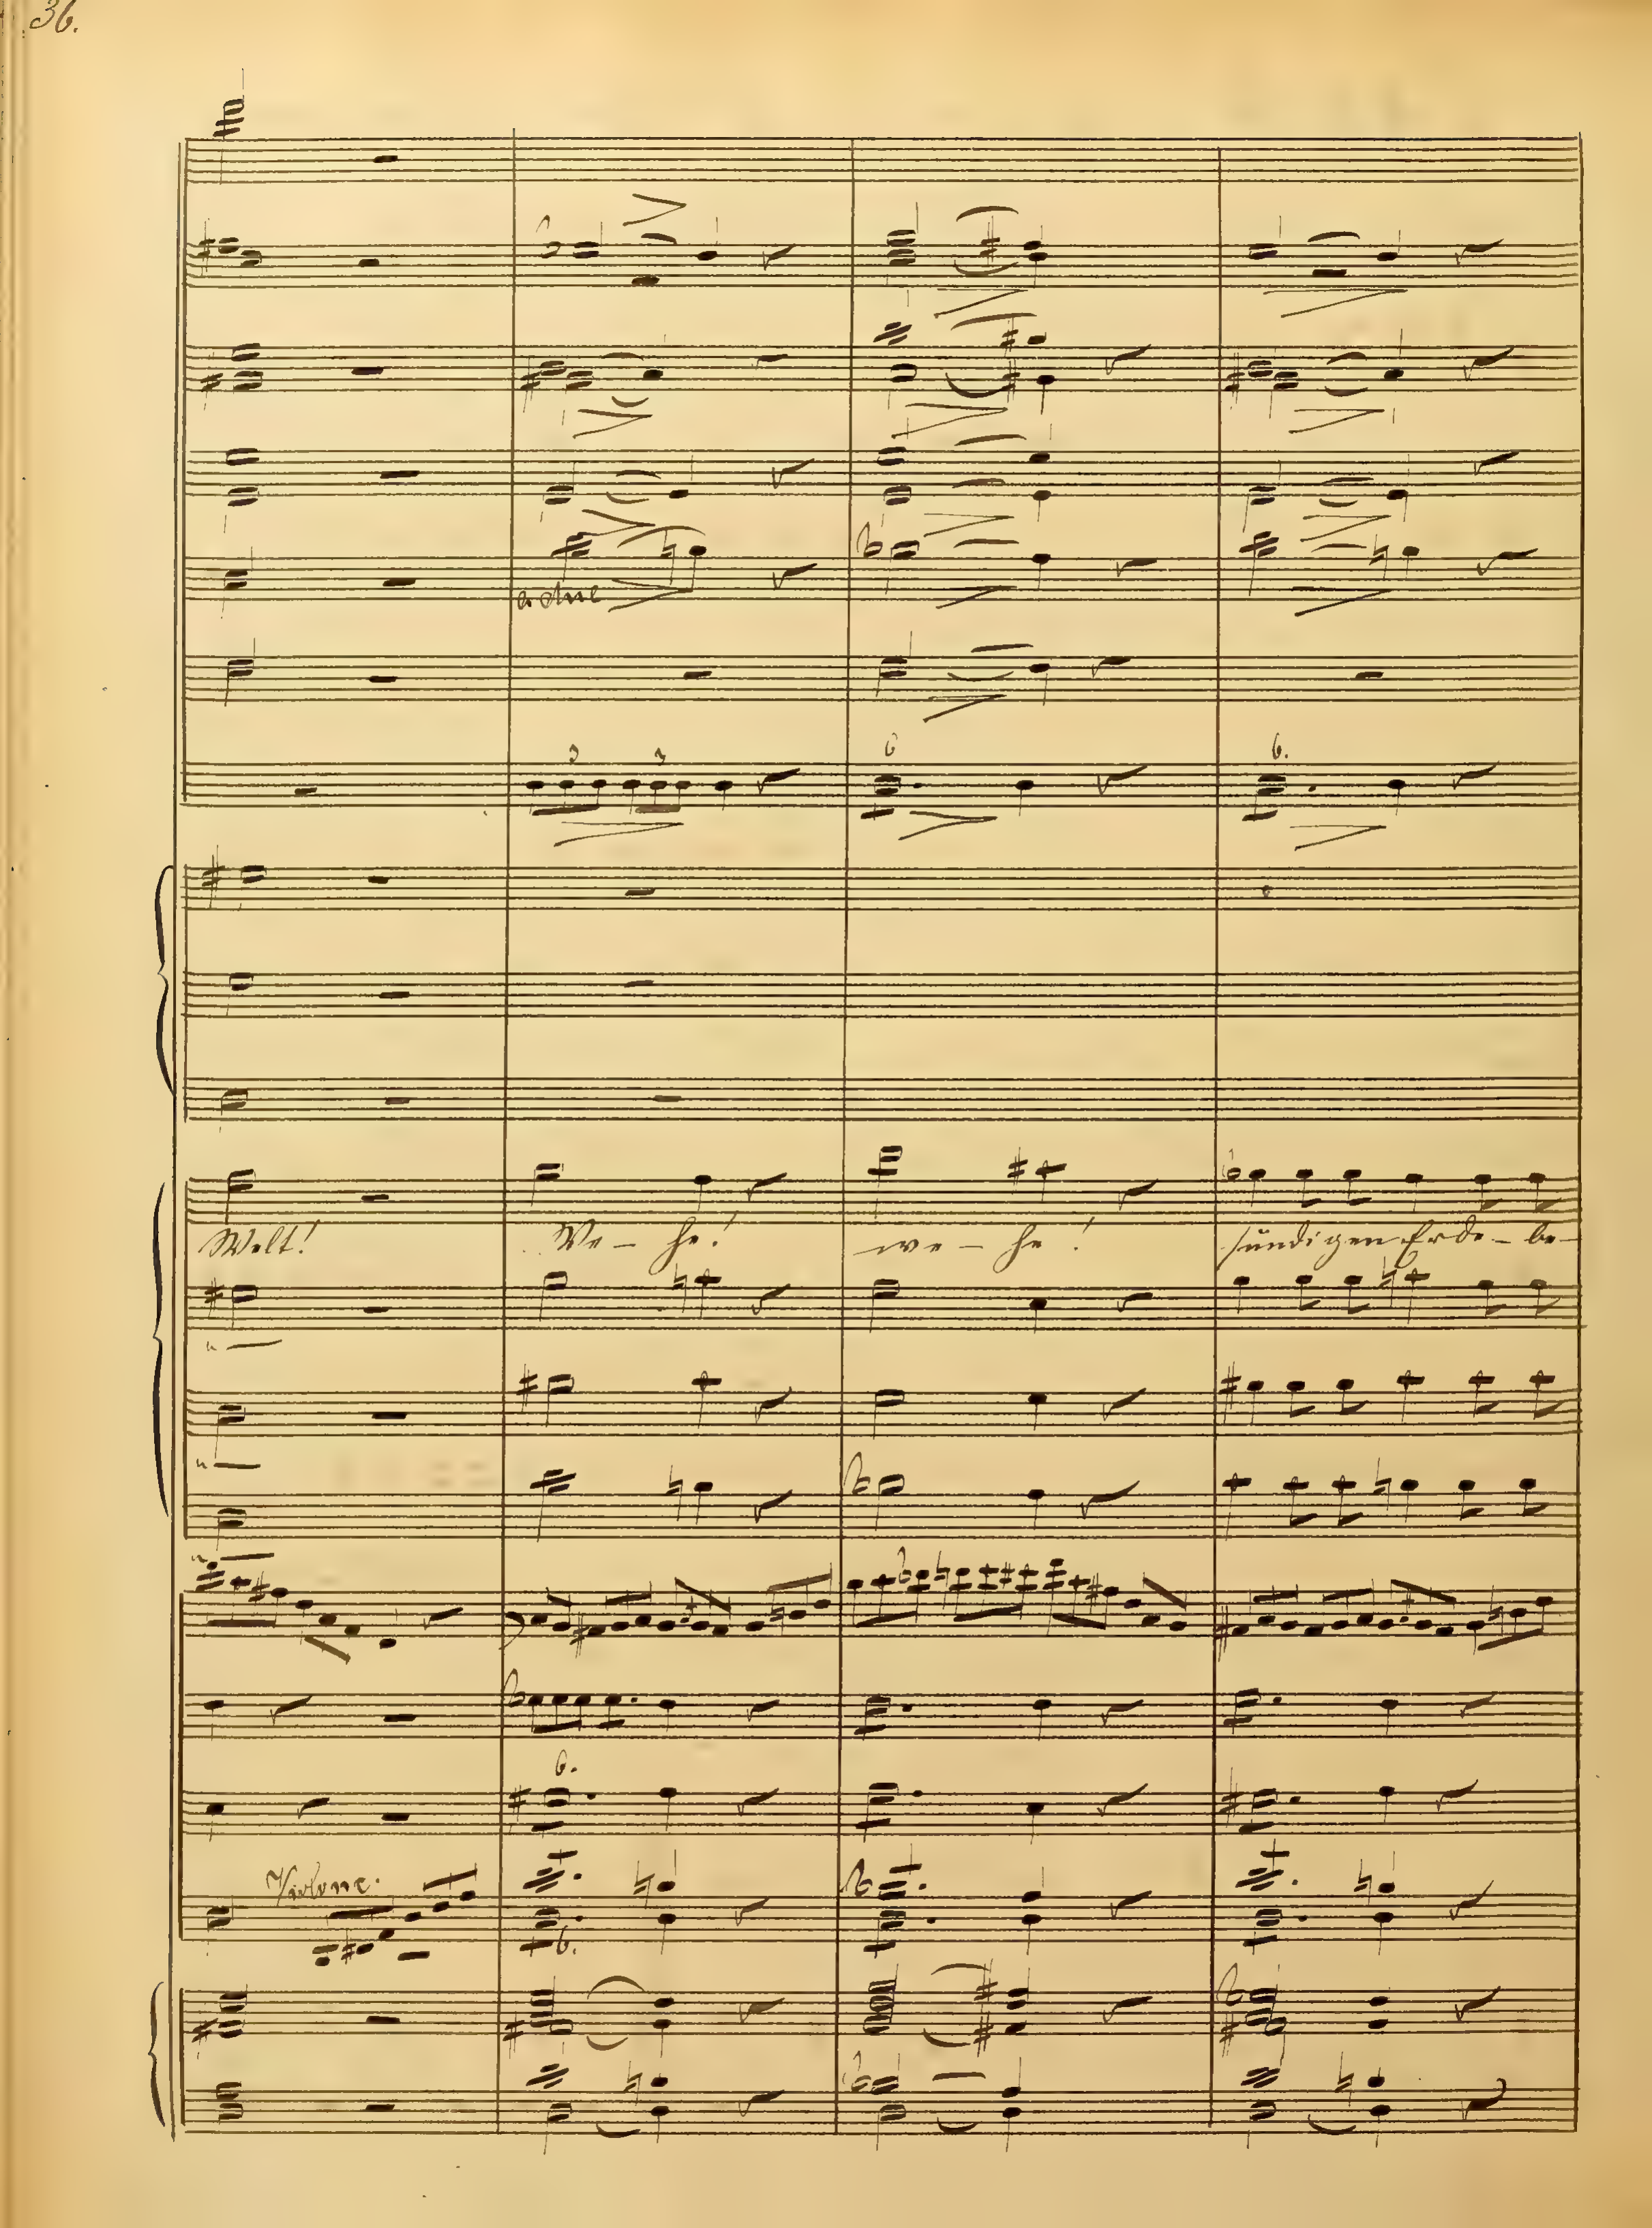 36.
a due
3 3 6 6.
Welt! We - he! we - he! sündigen Erde - be-
6.
Violone.
6.